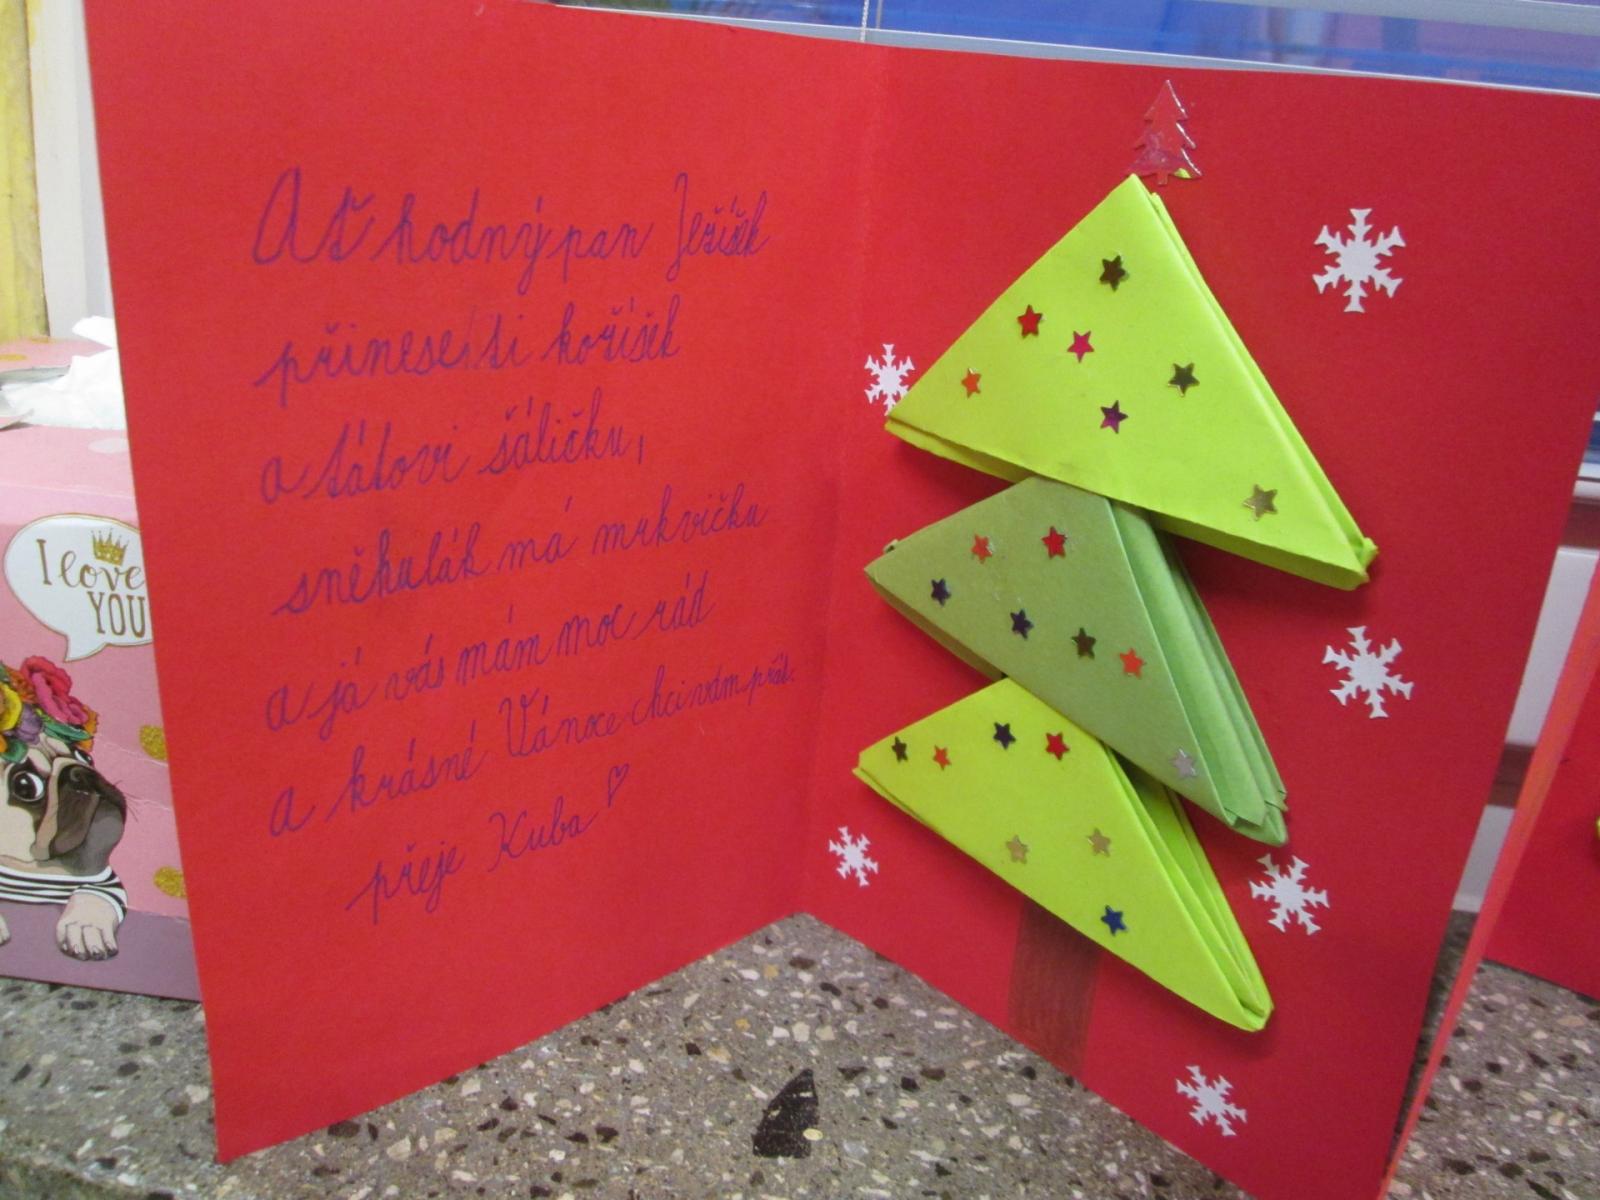 Ať hodný pan Ježíšek
přinese ti kožíšek
a tátovi šáličku,
sněhulák má mrkvičku
a já vás mám moc rád
a krásné Vánoce chci vám přát.
přeje Kuba ♡
I love
YOU